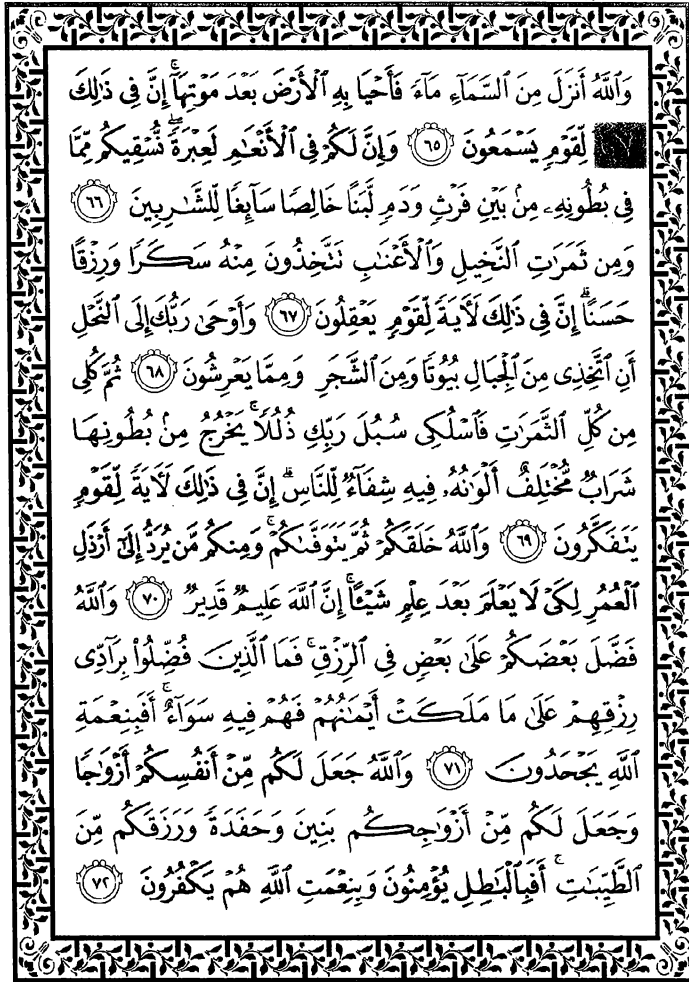 وَٱللَّهُ أَنزَلَ مِنَ ٱلسَّمَآءِ مَآءً فَأَحْيَا بِهِ ٱلْأَرْضَ بَعْدَ مَوْتِهَآ ۚ إِنَّ فِى ذَٰلِكَ
لِّقَوْمٍ يَسْمَعُونَ ٦٥ وَإِنَّ لَكُمْ فِى ٱلْأَنْعَٰمِ لَعِبْرَةً ۖ نُّسْقِيكُم مِّمَّا
فِى بُطُونِهِۦ مِنۢ بَيْنِ فَرْثٍ وَدَمٍ لَّبَنًا خَالِصًا سَآئِغًا لِّلشَّٰرِبِينَ ٦٦
وَمِن ثَمَرَٰتِ ٱلنَّخِيلِ وَٱلْأَعْنَٰبِ تَتَّخِذُونَ مِنْهُ سَكَرًا وَرِزْقًا
حَسَنًا ۗ إِنَّ فِى ذَٰلِكَ لَـَٔايَةً لِّقَوْمٍ يَعْقِلُونَ ٦٧ وَأَوْحَىٰ رَبُّكَ إِلَى ٱلنَّحْلِ
أَنِ ٱتَّخِذِى مِنَ ٱلْجِبَالِ بُيُوتًا وَمِنَ ٱلشَّجَرِ وَمِمَّا يَعْرِشُونَ ٦٨ ثُمَّ كُلِى
مِن كُلِّ ٱلثَّمَرَٰتِ فَٱسْلُكِى سُبُلَ رَبِّكِ ذُلُلًا ۚ يَخْرُجُ مِنۢ بُطُونِهَا
شَرَابٌ مُّخْتَلِفٌ أَلْوَٰنُهُۥ فِيهِ شِفَآءٌ لِّلنَّاسِ ۗ إِنَّ فِى ذَٰلِكَ لَـَٔايَةً لِّقَوْمٍ
يَتَفَكَّرُونَ ٦٩ وَٱللَّهُ خَلَقَكُمْ ثُمَّ يَتَوَفَّىٰكُمْ ۚ وَمِنكُم مَّن يُرَدُّ إِلَىٰٓ أَرْذَلِ
ٱلْعُمُرِ لِكَىْ لَا يَعْلَمَ بَعْدَ عِلْمٍ شَيْـًٔا ۚ إِنَّ ٱللَّهَ عَلِيمٌ قَدِيرٌ ٧٠ وَٱللَّهُ
فَضَّلَ بَعْضَكُمْ عَلَىٰ بَعْضٍ فِى ٱلرِّزْقِ ۚ فَمَا ٱلَّذِينَ فُضِّلُوا۟ بِرَآدِّى
رِزْقِهِمْ عَلَىٰ مَا مَلَكَتْ أَيْمَٰنُهُمْ فَهُمْ فِيهِ سَوَآءٌ ۚ أَفَبِنِعْمَةِ
ٱللَّهِ يَجْحَدُونَ ٧١ وَٱللَّهُ جَعَلَ لَكُم مِّنْ أَنفُسِكُمْ أَزْوَٰجًا
وَجَعَلَ لَكُم مِّنْ أَزْوَٰجِكُم بَنِينَ وَحَفَدَةً وَرَزَقَكُم مِّنَ
ٱلطَّيِّبَٰتِ ۚ أَفَبِٱلْبَٰطِلِ يُؤْمِنُونَ وَبِنِعْمَتِ ٱللَّهِ هُمْ يَكْفُرُونَ ٧٢